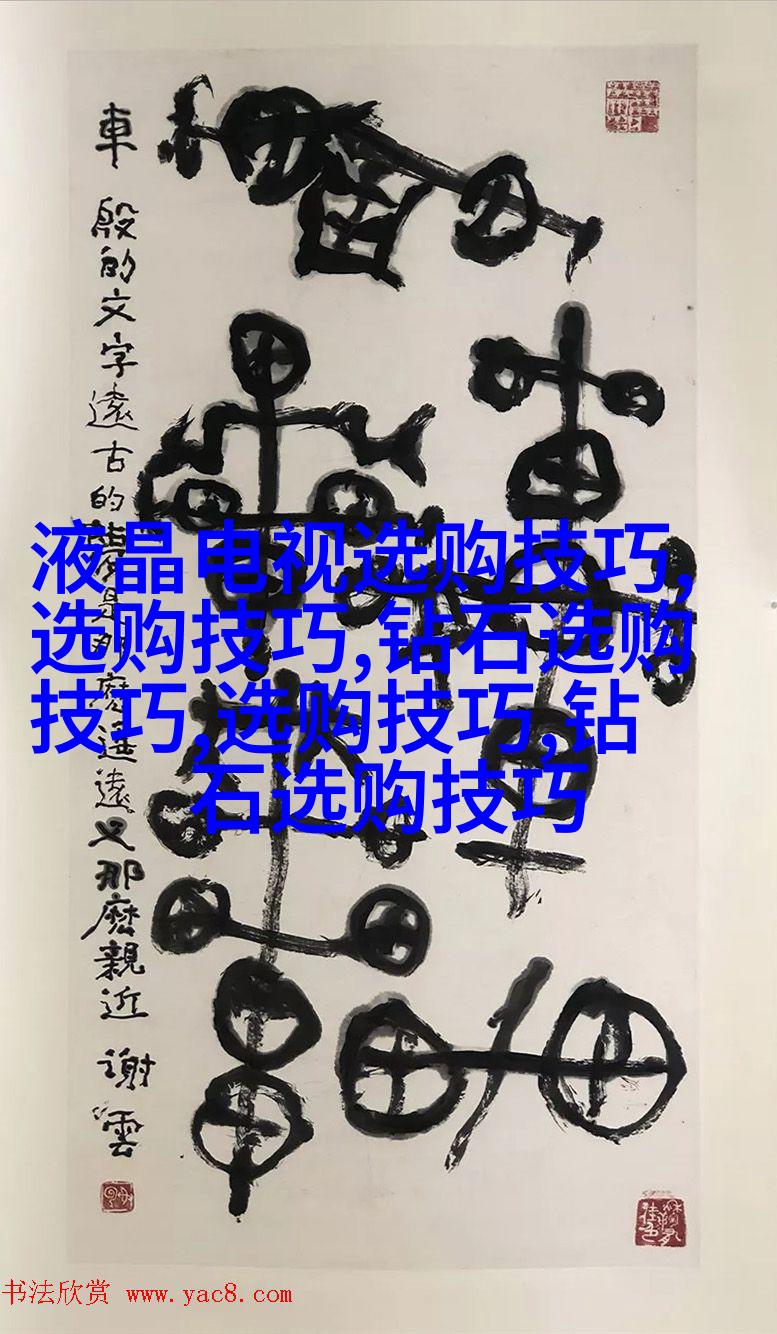 車 殷的文字遠古的是那麽遥遠又那麽親近 謝雲
液晶电视选购技巧,
选购技巧,钻石选购
技巧,选购技巧,钻
石选购技巧
书法欣赏 www.yac8.com